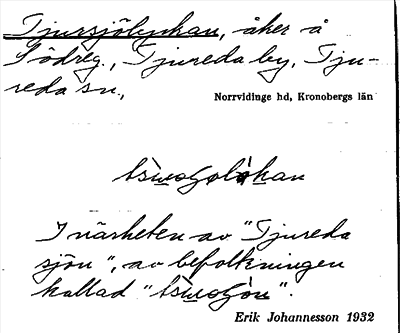 Tjurssjölyckan, åker å
Södreg., Tjureda by, Tju-
reda sn.,
Norrvidinge hd, Kronobergs län
I närheten av "Tjureda
sjön", av befolkningen
kallad
Erik Johannesson 1932